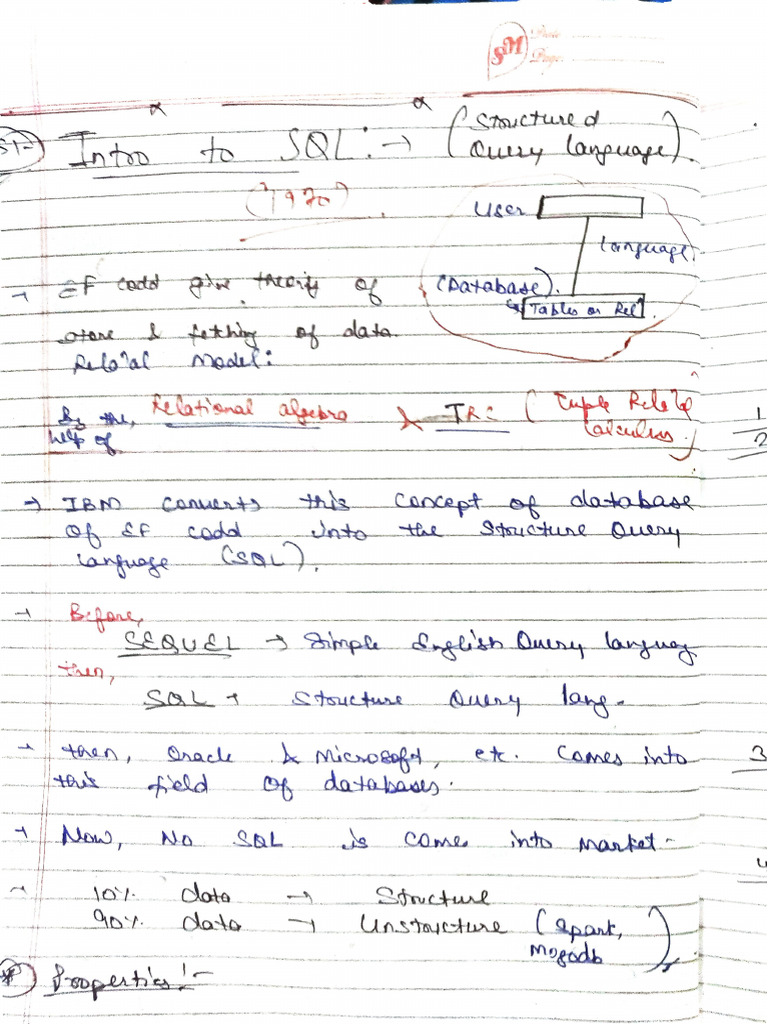 SM Date
Page
51- Intro to SQL:→ (Structured
Query language).
("1970")
User
language
→ EF codd give theory of (Database).
Tables or Relⁿ.
store & fetching of data
Rela"al Model:
By the, Relational algebra & TRC (Tuple Relaⁿal
help of Calculus.)
→ IBM converts this concept of database
of EF codd into the Structure Query
language (SQL).
→ Before,
SEQUEL → Simple English Query language
then,
SQL → Structure Query lang-
→ then, Oracle & Microsoft, etc. comes into
this field of databases.
→ Now, No SQL is come into market-
→ 10% data → Structure
90% data → Unstructure (Spark,
Mogodb)
* Properties:-
1
2
3
4